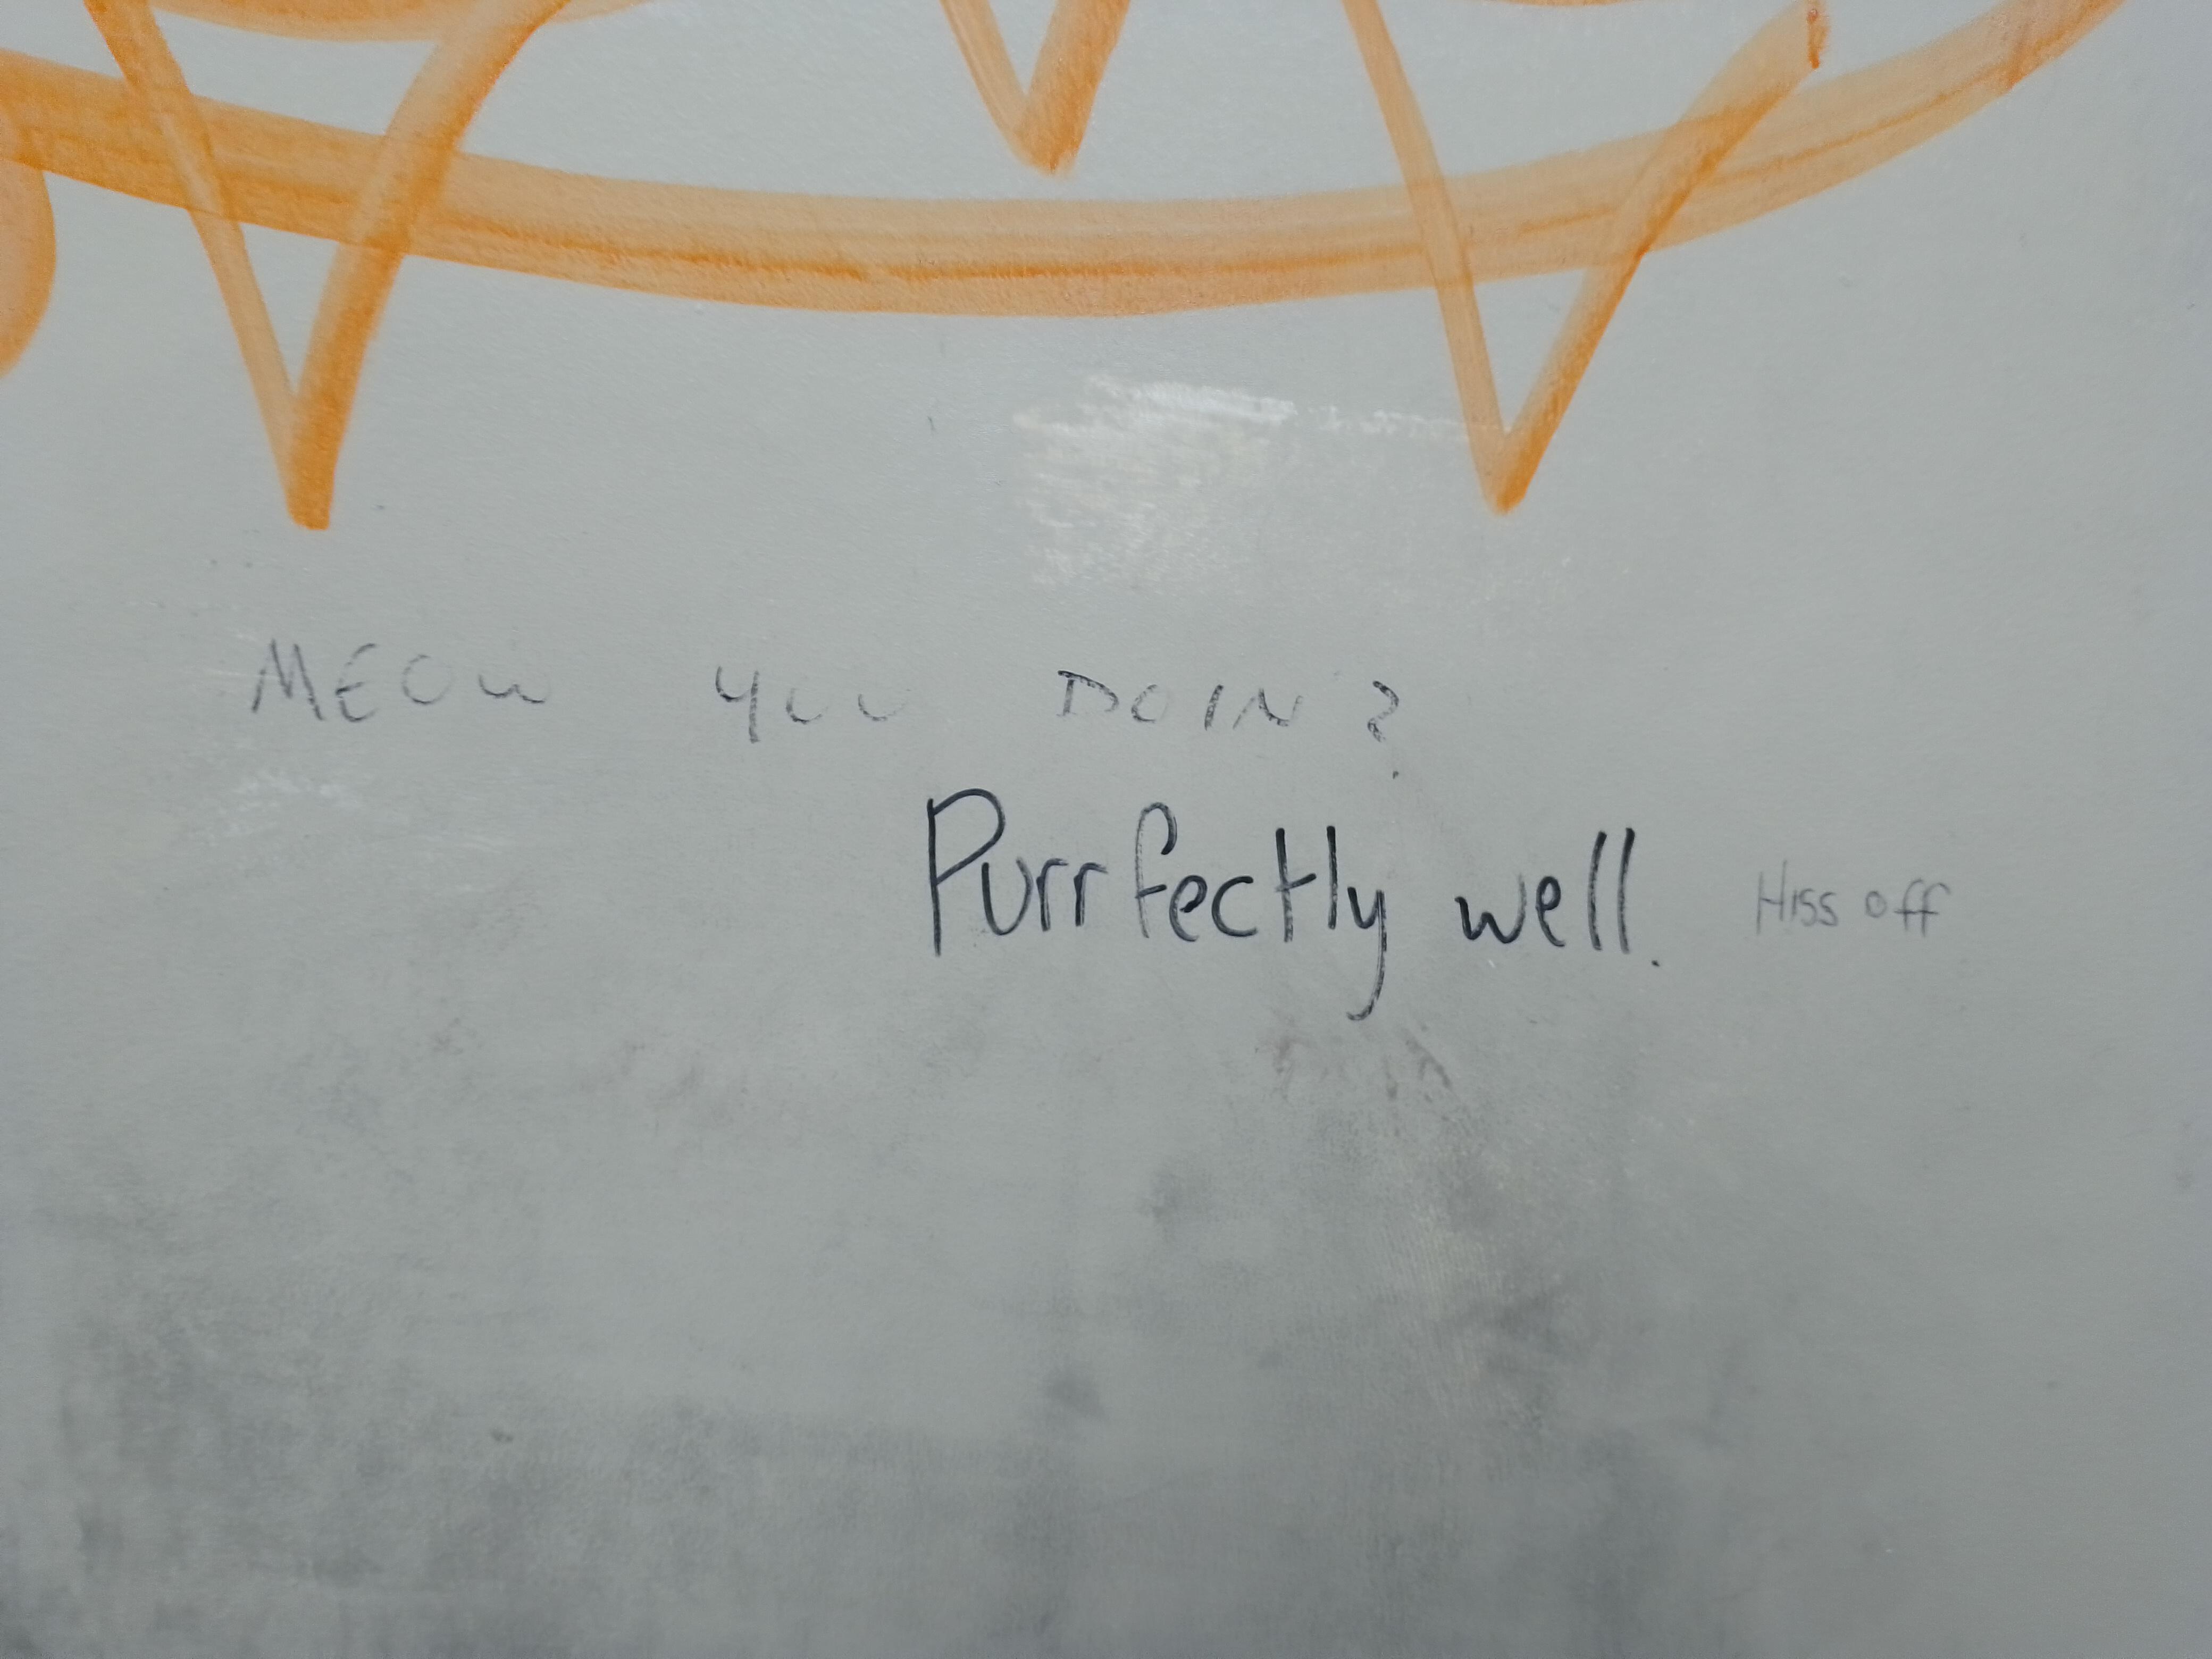 MEOW YOU DOIN?
Purrfectly well.
Hiss off